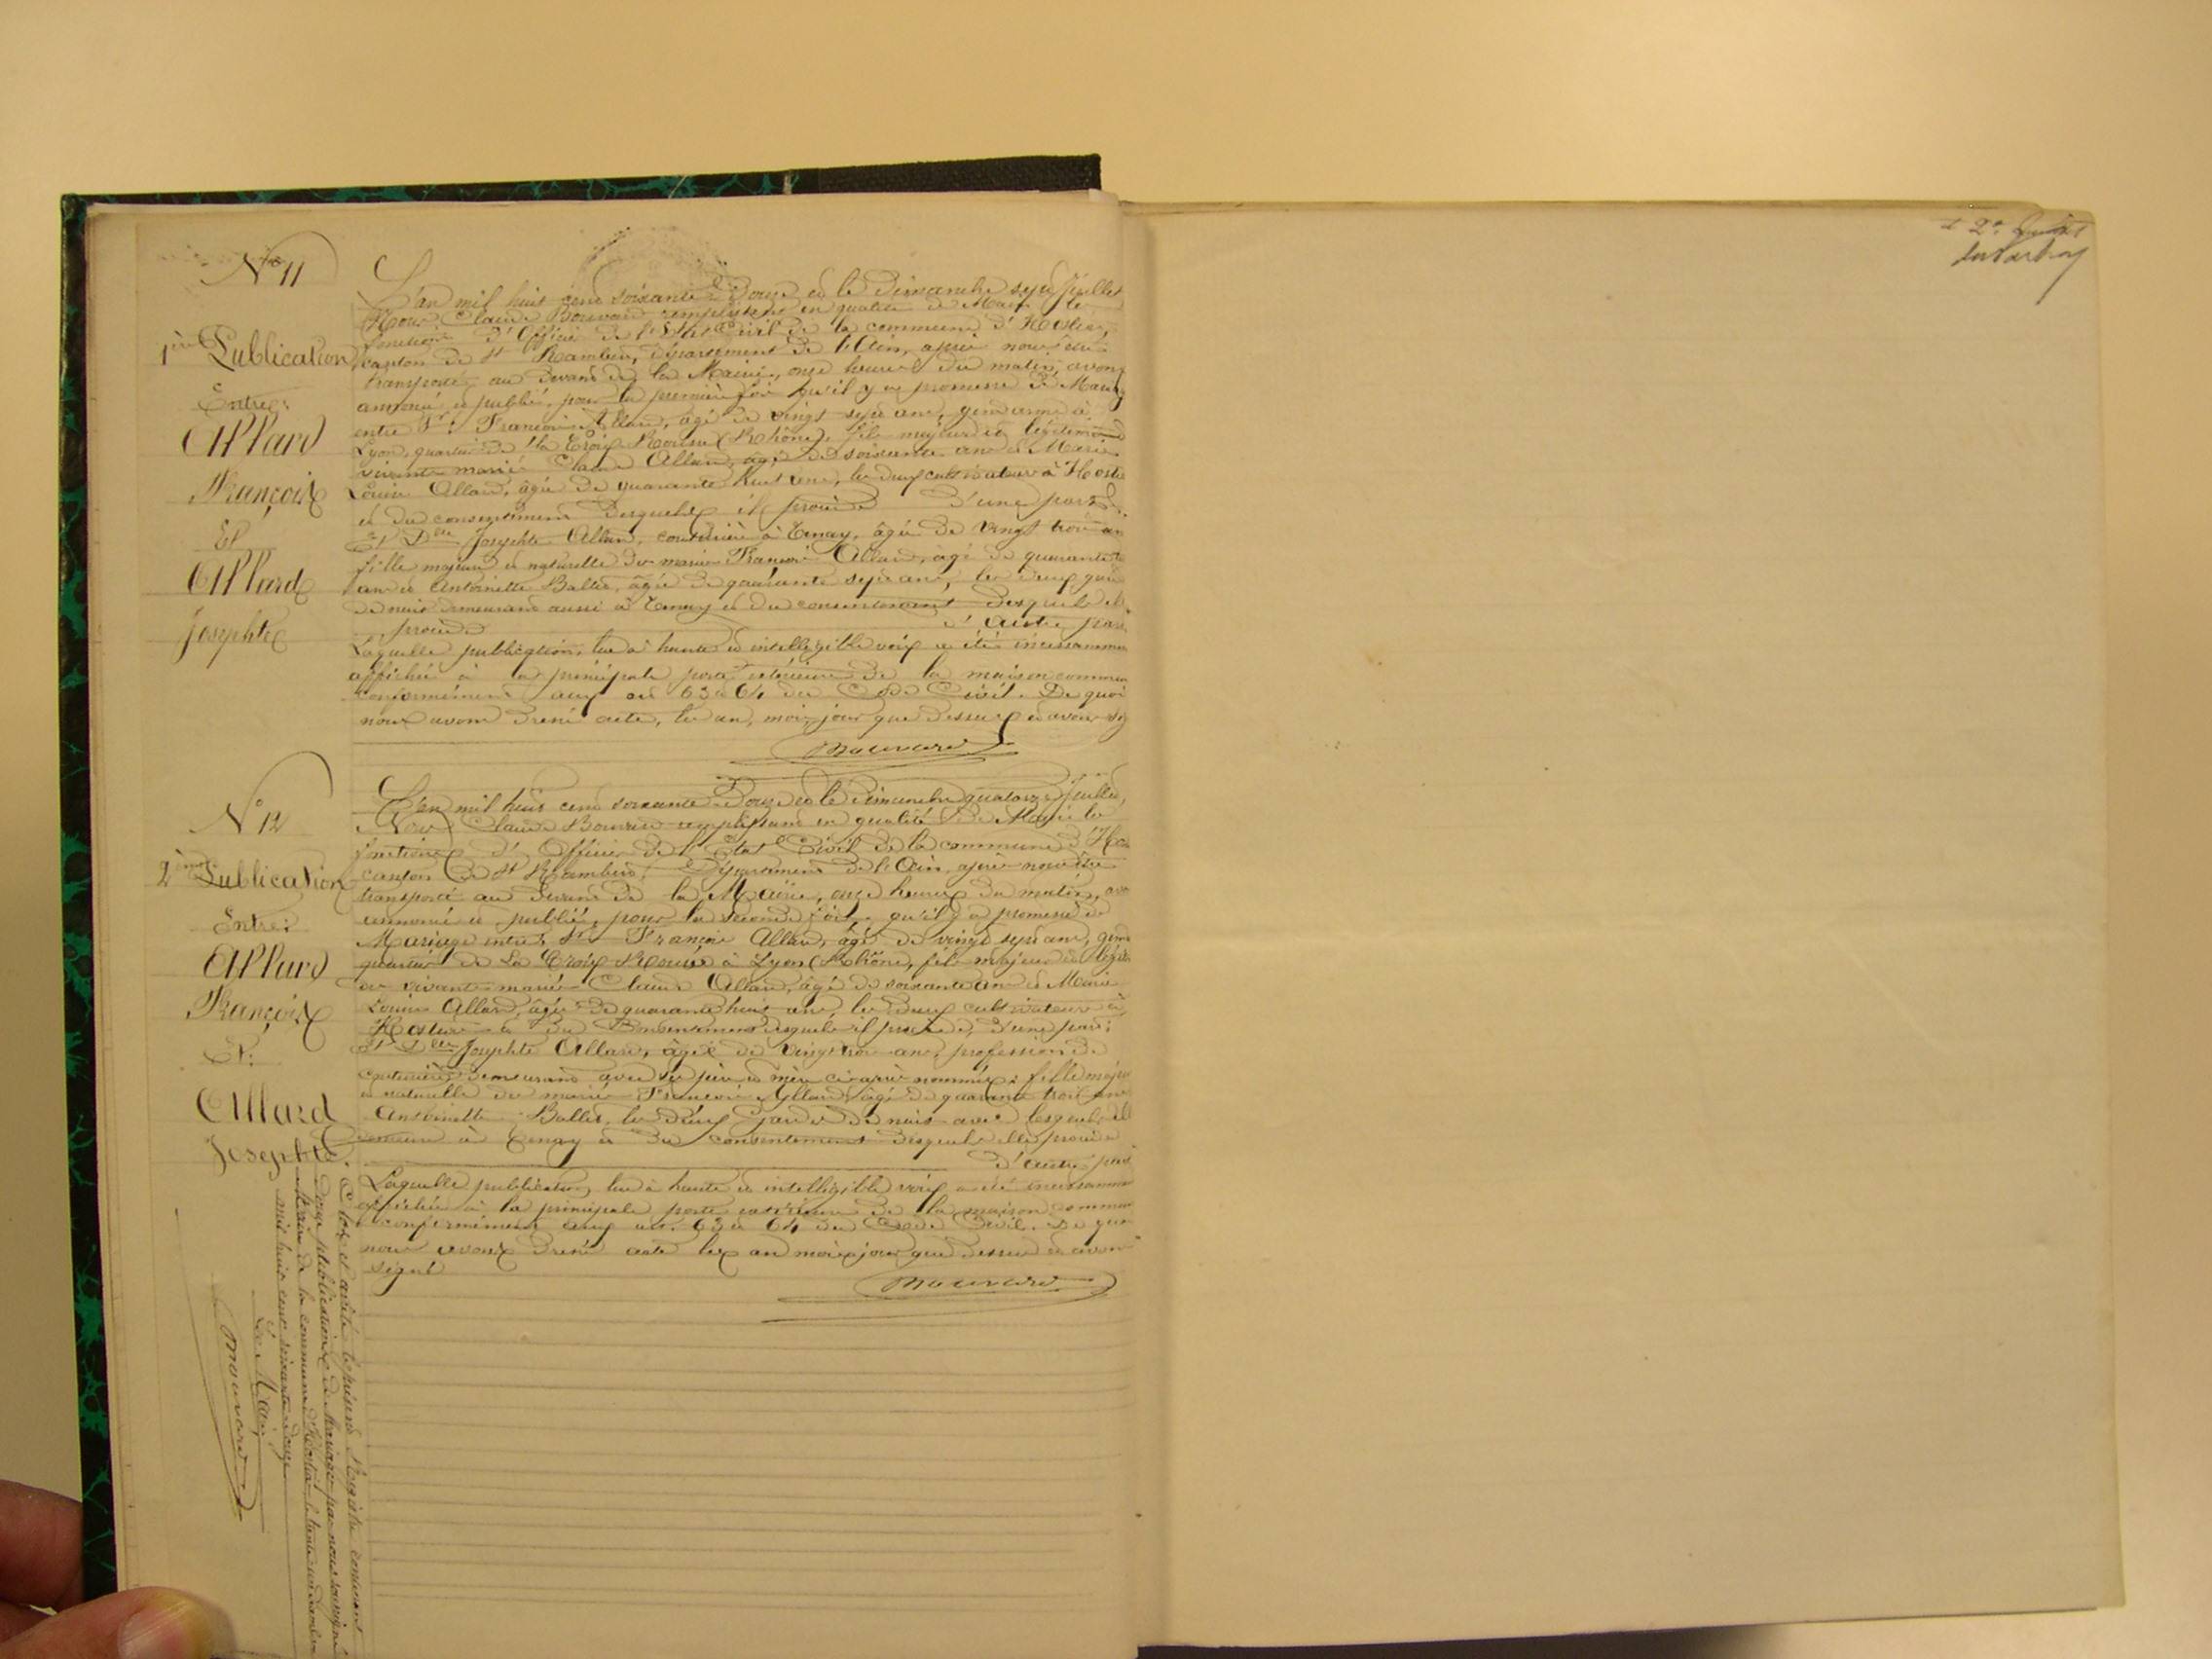 N° 11
1ère Publication
Entre:
Allard
François
Et
Allard
Josephte
L'an mil huit cent soixante Douze et le Dimanche sept Juillet
Nous, Claude Bouvard remplissant en qualité de Maire les
fonctions d'Officier de l'Etat Civil de la commune d'Hostiaz,
canton de St Rambert, département de l'Ain, après nous être
transporté au devant de la Mairie, onze heures du matin, avons
annoncé et publié, pour la première fois qu'il y a promesse de Mariage
entre Sr François Allard, âgé de vingt sept ans, gendarme à
Lyon, quartier de la Croix Rousse (Rhône), fils majeur et légitime
vivants mariés Claude Allard, âgé de soixante ans et Marie
Louise Allard, âgée de quarante huit ans, les deux cultivateurs à
et du consentement desquels il procède d'une part
Et Dlle Josephte Allard, couturière à Tenay, âgée de vingt trois ans
fille majeure et naturelle de mariés François Allard, âgé de quarante
ans et Antoinette Ballet, âgée de quarante sept ans, les deux
de nuit demeurant aussi à Tenay et du consentement desquels
procède d'autre part
Laquelle publication, lue à haute et intelligible voix a été incessamment
affichée à la principale porte extérieure de la maison commune
conformément aux art 63 et 64 du Code Civil. De quoi
nous avons dressé acte, les an, mois, jour que dessus et avons
Bouvard
N° 12
2ème Publication
Entre:
Allard
François
Et:
Allard
Josephte.
L'an mil huit cent soixante Douze et le Dimanche quatorze Juillet,
Nous Claude Bouvard remplissant en qualité de Maire les
fonctions d'Officier de l'Etat Civil de la commune
canton de St Rambert, Département de l'Ain, après nous être
transporté au devant de la Mairie, onze heures du matin,
annoncé et publié, pour la seconde fois, qu'il y a promesse de
Mariage entre Sr François Allard, âgé de vingt sept ans,
quartier de La Croix Rousse à Lyon (Rhône, fils majeur et
de vivants mariés Claude Allard, âgé de soixante ans et Marie
Louise Allard, âgée de quarante huit ans, les deux cultivateurs à
et du Consentement desquels il procède, d'une part;
Et Dlle Josephte Allard, âgée de vingt trois ans, profession de
couturière demeurant avec ses père et mère ci-après nommés: fille
et naturelle de mariés François Allard, âgé de quarante trois ans
Antoinette Ballet, les deux gardes de nuit avec lesquels
demeure à Tenay et du consentement desquels elle procède
d'autre part
Laquelle publication, lue à haute et intelligible voix a été incessamment
affichée à la principale porte extérieure de la maison commune
conformément aux art. 63 et 64 du Code Civil. De quoi
nous avons dressé acte les an mois et jour que dessus et avons
signé
Bouvard
Clos et arrêté le présent Registre contenant
douze publications de Mariage par nous soussigné
Maire de la commune d'Hostiaz le trente un décembre
mil huit cent soixante douze
Le Maire
Bouvard